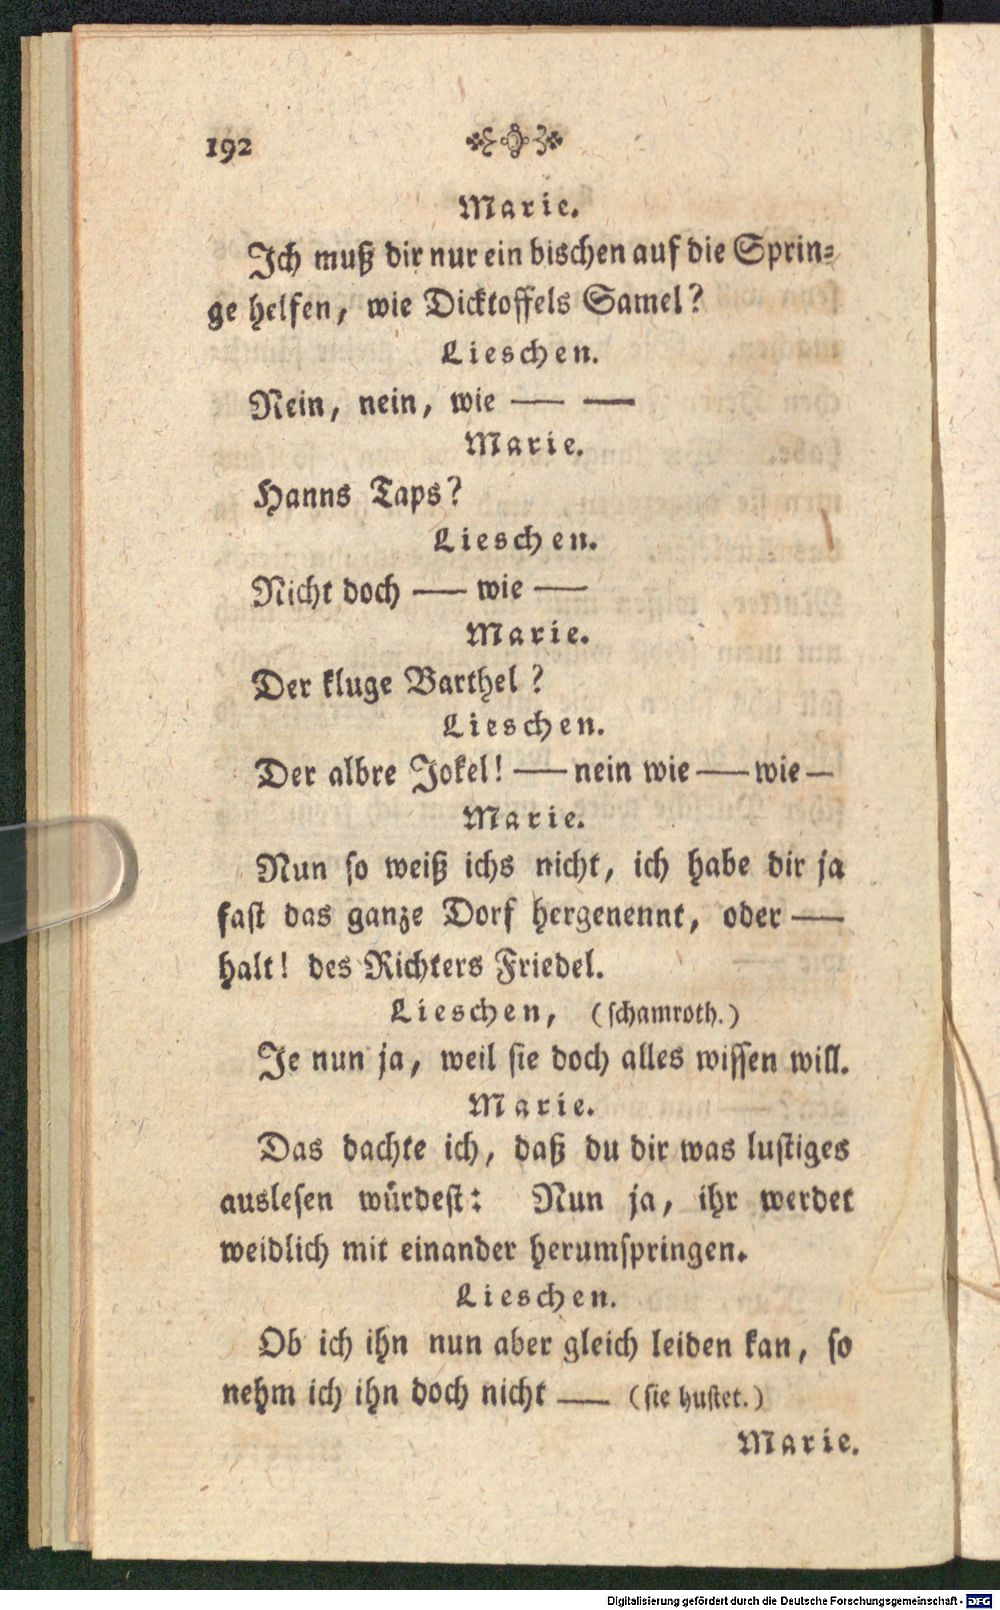 192
Marie.
Ich muß dir nur ein bischen auf die Sprin-
ge helfen, wie Dicktoffels Samel?
Lieschen.
Nein, nein, wie — —
Marie.
Hanns Taps?
Lieschen.
Nicht doch — wie —
Marie.
Der kluge Barthel?
Lieschen.
Der albre Jokel! — nein wie — wie —
Marie.
Nun so weiß ichs nicht, ich habe dir ja
fast das ganze Dorf hergenennt, oder —
halt! des Richters Friedel.
Lieschen, (schamroth.)
Je nun ja, weil sie doch alles wissen will.
Marie.
Das dachte ich, daß du dir was lustiges
auslesen würdest: Nun ja, ihr werdet
weidlich mit einander herumspringen.
Lieschen.
Ob ich ihn nun aber gleich leiden kan, so
nehm ich ihn doch nicht — (sie hustet.)
Marie.
Digitalisierung gefördert durch die Deutsche Forschungsgemeinschaft - DFG